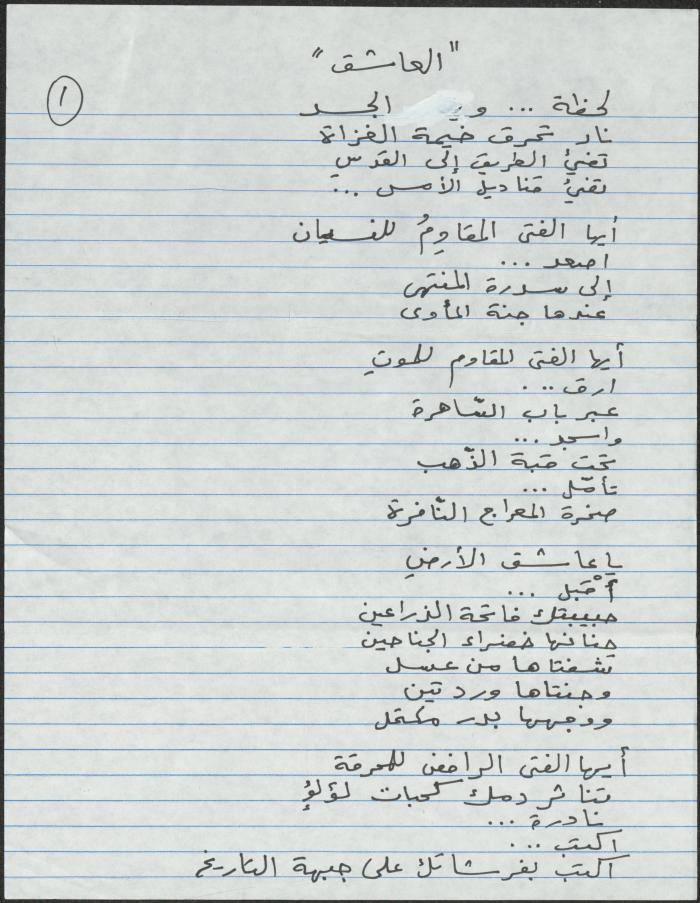 "العاشق"
١
لحظة ... الجسد
نار تحرق خيمة الغزاة
تضيءُ الطريق إلى القدسِ
تضيءُ قناديل الأمس ...
أيها الفتى المقاوِمُ للنسيان
اصعد ...
إلى سدرة المنتهى
عندها جنة المأوى
أيها الفتى المقاوم للموتِ
ارق ...
عبر باب السّاهرة
واسجد ...
تحت قبة الذّهب
تأمّل ...
صخرة المعراج النّافرة
يا عاشق الأرضِ
أقبل ...
حبيبتك فاتحة الذراعين
جنانها خضراء الجناحين
شفتاها من عسل
وجنتاها وردتين
ووجهها بدر مكتمل
أيها الفتى الرافض للمحرقة
تناثر دمك كحبات لؤلؤٍ
نادرة ...
اكتب ...
اكتب بفرشاتك على جبهة التاريخ